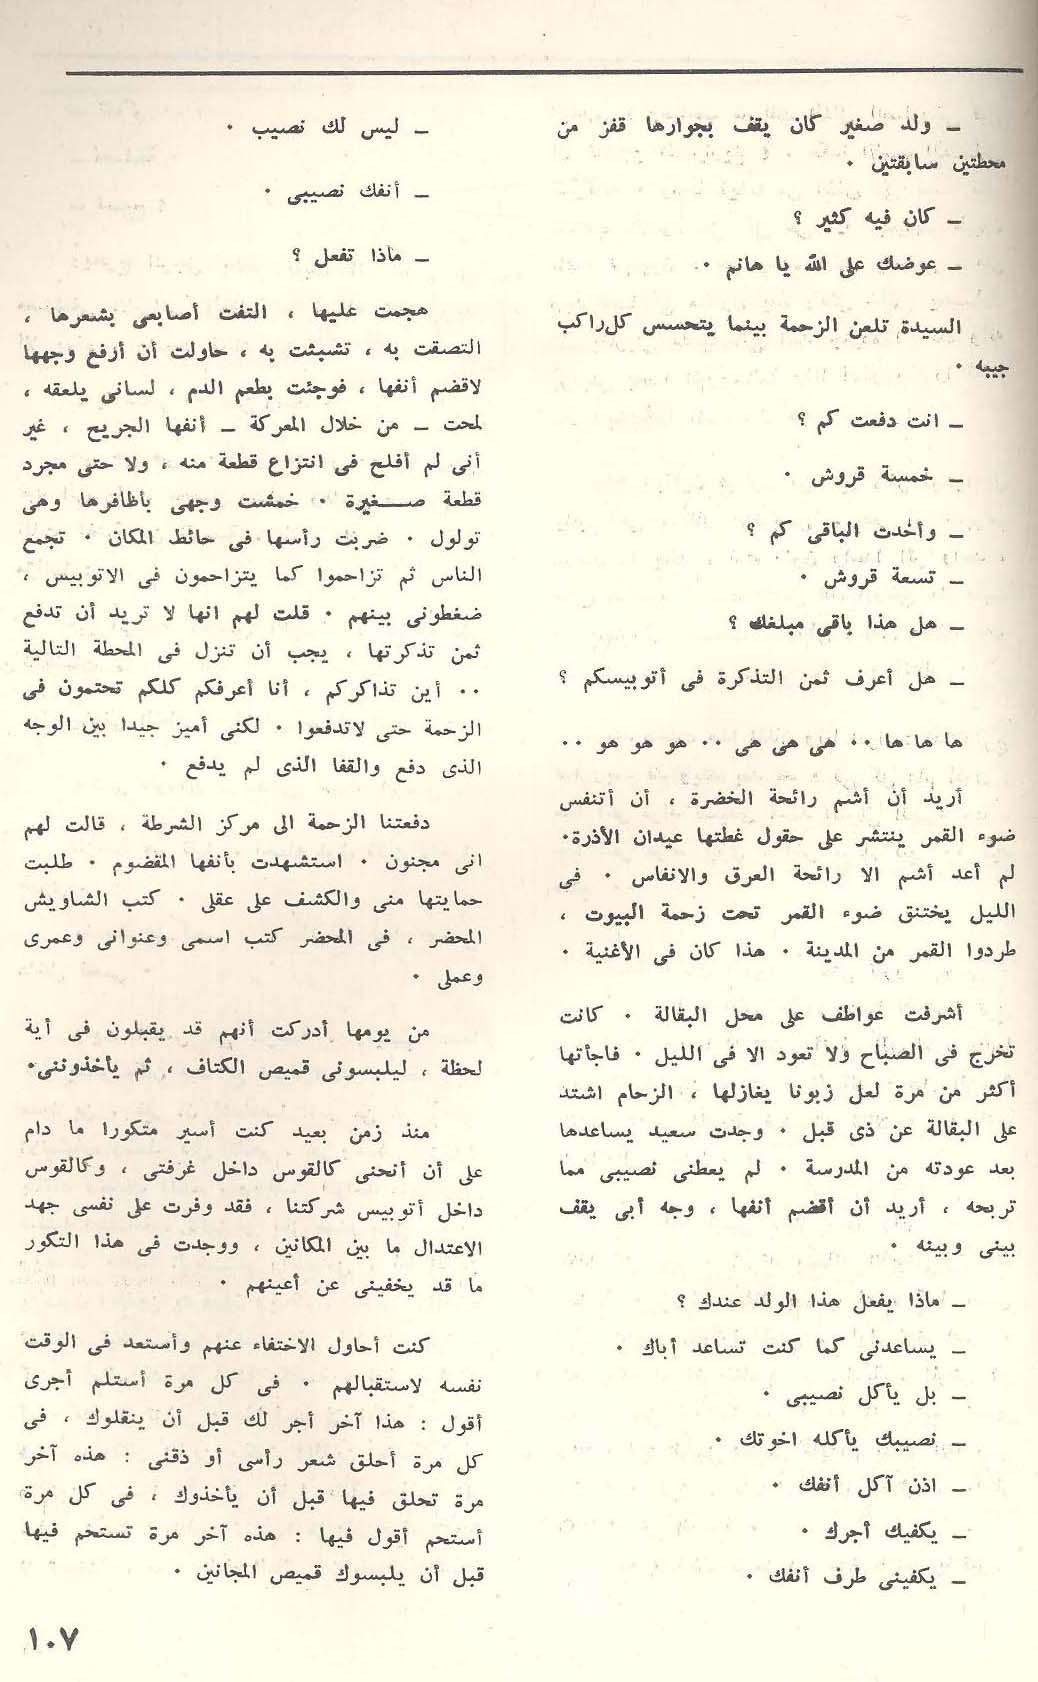 ــ ولد صغير كان يقف بجوارها قفز من
محطتين سابقتين ٠
ــ كان فيه كثير ؟
ــ عوضك على الله يا هانم ٠
السيدة تلعن الزحمة بينما يتحسس كل راكب
جيبه ٠
ــ انت دفعت كم ؟
ــ خمسة قروش ٠
ــ وأخدت الباقى كم ؟
ــ تسعة قروش ٠
ــ هل هذا باقى مبلغك ؟
ــ هل أعرف ثمن التذكرة فى أتوبيسكم ؟
ها ها ها ٠٠ هى هى هى ٠٠ هو هو هو ٠٠
أريد أن أشم رائحة الخضرة ، أن أتنفس
ضوء القمر ينتشر على حقول غطتها عيدان الأذرة٠
لم أعد أشم الا رائحة العرق والانفاس ٠ فى
الليل يختنق ضوء القمر تحت زحمة البيوت ،
طردوا القمر من المدينة ٠ هذا كان فى الأغنية ٠
أشرفت عواطف على محل البقالة ٠ كانت
تخرج فى الصباح ولا تعود الا فى الليل ٠ فاجأتها
أكثر من مرة لعل زبونا يغازلها ، الزحام اشتد
على البقالة عن ذى قبل ٠ وجدت سعيد يساعدها
بعد عودته من المدرسة ٠ لم يعطنى نصيبى مما
تربحه ، أريد أن أقضم أنفها ، وجه أبى يقف
بينى وبينه ٠
ــ ماذا يفعل هذا الولد عندك ؟
ــ يساعدنى كما كنت تساعد أباك ٠
ــ بل يأكل نصيبى ٠
ــ نصيبك يأكله اخوتك ٠
ــ اذن آكل أنفك ٠
ــ يكفيك أجرك ٠
ــ يكفينى طرف أنفك ٠
ــ ليس لك نصيب ٠
ــ أنفك نصيبى ٠
ــ ماذا تفعل ؟
هجمت عليها ، التفت أصابعى بشعرها ،
التصقت به ، تشبثت به ، حاولت أن أرفع وجهها
لاقضم أنفها ، فوجئت بطعم الدم ، لسانى يلعقه ،
لمحت ــ من خلال المعركة ــ أنفها الجريح ، غير
أنى لم أفلح فى انتزاع قطعة منه ، ولا حتى مجرد
قطعة صــغيرة ٠ خمشت وجهى بأظافرها وهى
تولول ٠ ضربت رأسها فى حائط المكان ٠ تجمع
الناس ثم تزاحموا كما يتزاحمون فى الاتوبيس ،
ضغطونى بينهم ٠ قلت لهم انها لا تريد أن تدفع
ثمن تذكرتها ، يجب أن تنزل فى المحطة التالية
٠٠ أين تذاكركم ، أنا أعرفكم كلكم تحتمون فى
الزحمة حتى لاتدفعوا ٠ لكنى أميز جيدا بين الوجه
الذى دفع والقفا الذى لم يدفع ٠
دفعتنا الزحمة الى مركز الشرطة ، قالت لهم
انى مجنون ٠ استشهدت بأنفها المقضوم ٠ طلبت
حمايتها منى والكشف على عقلى ٠ كتب الشاويش
المحضر ، فى المحضر كتب اسمى وعنوانى وعمرى
وعملى ٠
من يومها أدركت أنهم قد يقبلون فى أية
لحظة ، ليلبسونى قميص الكتاف ، ثم يأخذوننى٠
منذ زمن بعيد كنت أسير متكورا ما دام
على أن أنحنى كالقوس داخل غرفتى ، وكالقوس
داخل أتوبيس شركتنا ، فقد وفرت على نفسى جهد
الاعتدال ما بين المكانين ، ووجدت فى هذا التكور
ما قد يخفينى عن أعينهم ٠
كنت أحاول الاختفاء عنهم وأستعد فى الوقت
نفسه لاستقبالهم ٠ فى كل مرة أستلم أجرى
أقول : هذا آخر أجر لك قبل أن ينقلوك ، فى
كل مرة أحلق شعر رأسى أو ذقنى : هذه آخر
مرة تحلق فيها قبل أن يأخذوك ، فى كل مرة
أستحم أقول فيها : هذه آخر مرة تستحم فيها
قبل أن يلبسوك قميص المجانين ٠
١٠٧